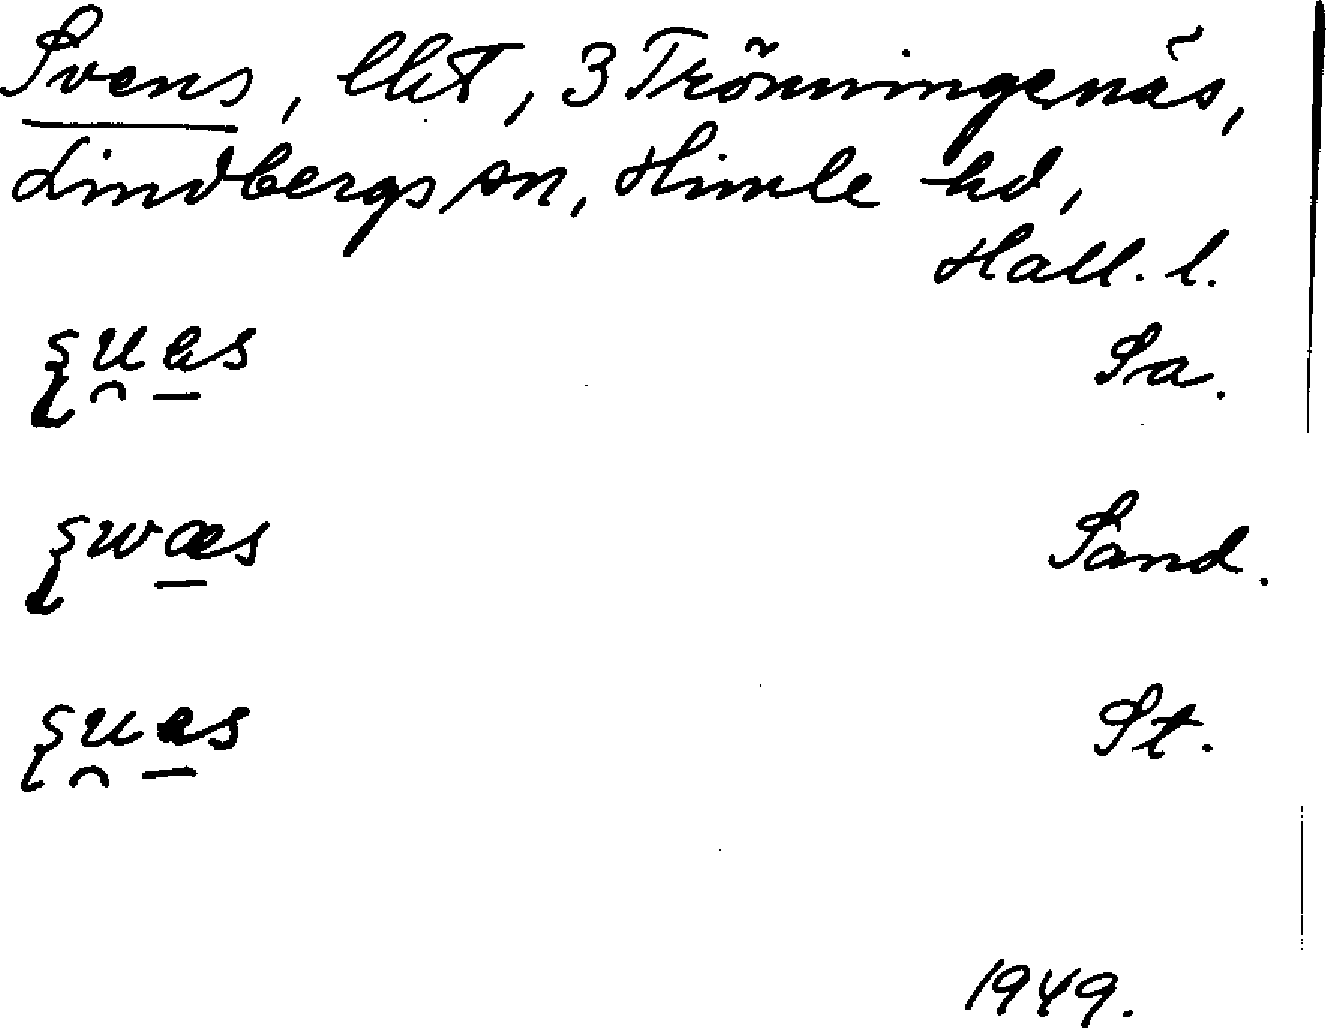 Svens, lht, 3 Trönningenäs,
Lindbergs sn, Himle hd,
Hall. l.
Sa.
Sand.
St.
1949.